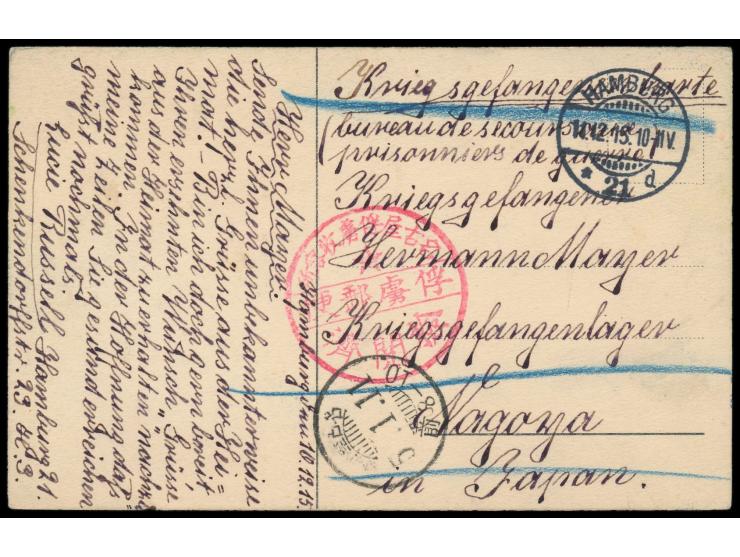 Kriegsgefangenenkarte
(bureau de secours aux
prisonniers de guerre)
Kriegsgefangener
Hermann Mayer
Kriegsgefangenlager
Nagoya
in Japan.
HAMBURG
14.12.15. 10-11V.
* 21 d
俘虜郵便
5.1.11
Hamburg, den 10.12.15.
Herr Mayer!
Sende Ihnen unbekannterweise
die herzl. Grüsse aus der Hei=
mat! Bin ich doch gern bereit
Ihren ersehnten Wunsch, Grüsse
aus der Heimat zu erhalten nachzu
kommen. In der Hoffnung dass
meine Zeilen Sie gesund erreichen
grüßt nochmals
Lucie Russell Hamburg 21.
Schenkendorfstr. 23.